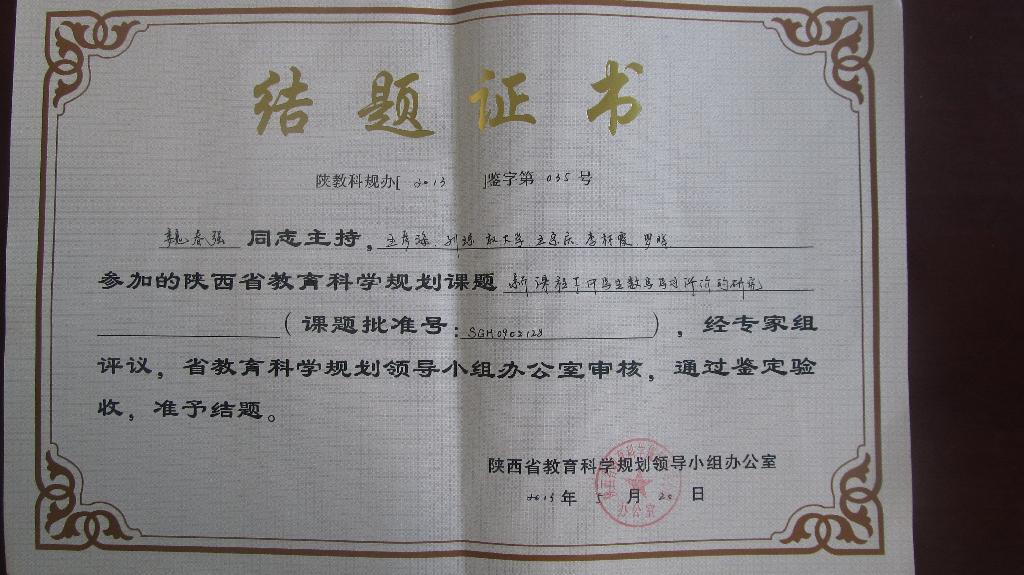 结题证书
陕教科规办[ 2013 ]鉴字第 035 号
魏春强 同志主持，
参加的陕西省教育科学规划课题 新课程下
（课题批准号：SGH0902128），经专家组
评议，省教育科学规划领导小组办公室审核，通过鉴定验
收，准予结题。
陕西省教育科学规划领导小组办公室
2013 年 5 月 20 日
办公室